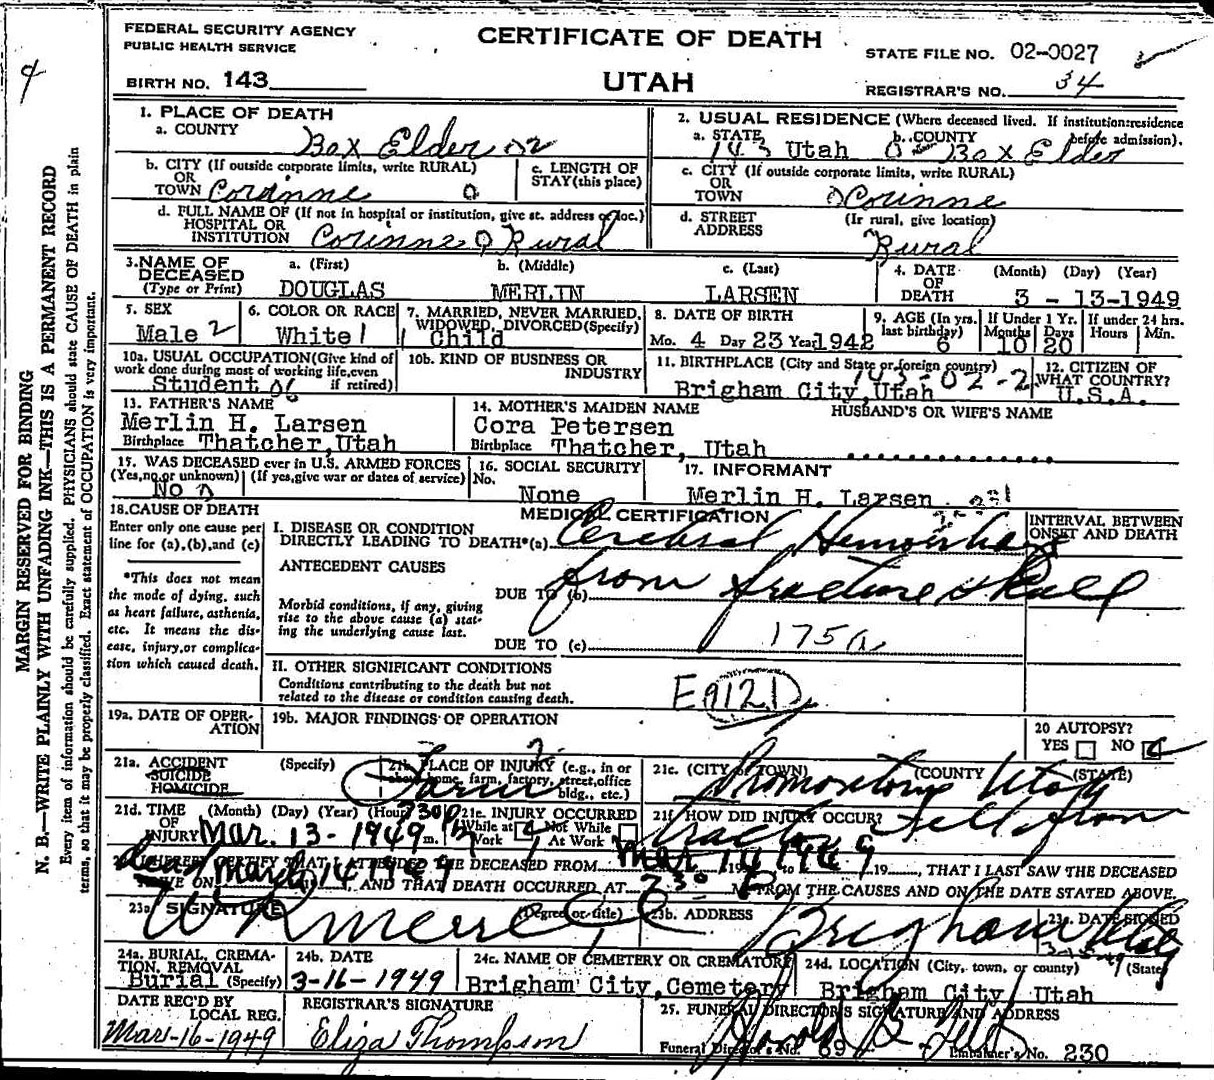 FEDERAL SECURITY AGENCY
PUBLIC HEALTH SERVICE
CERTIFICATE OF DEATH
STATE FILE NO. 02-0027
BIRTH NO. 143
UTAH
REGISTRAR'S NO. 34
MARGIN RESERVED FOR BINDING
N. B.—WRITE PLAINLY WITH UNFADING INK—THIS IS A PERMANENT RECORD
Every item of information should be carefully supplied. PHYSICIANS should state CAUSE OF DEATH in plain
terms, so that it may be properly classified. Exact statement of OCCUPATION is very important.
1. PLACE OF DEATH
a. COUNTY
Box Elder 02
2. USUAL RESIDENCE (Where deceased lived. If institution:residence
before admission).
a. STATE b. COUNTY
143 Utah 0 Box Elder
b. CITY (If outside corporate limits, write RURAL)
OR
TOWN Corinne 0
c. LENGTH OF
STAY (this place)
c. CITY (If outside corporate limits, write RURAL)
OR
TOWN 0 Corinne
d. FULL NAME OF (If not in hospital or institution, give st. address or loc.)
HOSPITAL OR
INSTITUTION Corinne 0 Rural
d. STREET (If rural, give location)
ADDRESS
Rural
3. NAME OF
DECEASED
(Type or Print)
a. (First) b. (Middle) c. (Last)
DOUGLAS MERLIN LARSEN
4. DATE (Month) (Day) (Year)
OF
DEATH 3 - 13-1949
5. SEX
Male 2
6. COLOR OR RACE
White 1
7. MARRIED, NEVER MARRIED,
WIDOWED, DIVORCED (Specify)
Child
8. DATE OF BIRTH
Mo. 4 Day 23 Year 1942
9. AGE (In yrs. last birthday) 6
If Under 1 Yr. Months 10 Days 20
If under 24 hrs. Hours Min.
10a. USUAL OCCUPATION (Give kind of
work done during most of working life, even
if retired)
Student
10b. KIND OF BUSINESS OR
INDUSTRY
11. BIRTHPLACE (City and State or foreign country)
143-02-2
Brigham City, Utah
12. CITIZEN OF
WHAT COUNTRY?
U.S.A.
13. FATHER'S NAME
Merlin H. Larsen
Birthplace Thatcher, Utah
14. MOTHER'S MAIDEN NAME
Cora Petersen
Birthplace Thatcher, Utah
HUSBAND'S OR WIFE'S NAME
15. WAS DECEASED ever in U.S. ARMED FORCES
(Yes, no, or unknown) (If yes, give war or dates of service)
No
16. SOCIAL SECURITY
No.
None
17. INFORMANT
Merlin H. Larsen
18. CAUSE OF DEATH
Enter only one cause per
line for (a), (b), and (c)
*This does not mean
the mode of dying, such
as heart failure, asthenia,
etc. It means the dis-
ease, injury, or complica-
tion which caused death.
MEDICAL CERTIFICATION
INTERVAL BETWEEN
ONSET AND DEATH
I. DISEASE OR CONDITION
DIRECTLY LEADING TO DEATH*(a) Cerebral Hemorrhage
ANTECEDENT CAUSES
DUE TO (b) from fracture skull
Morbid conditions, if any, giving
rise to the above cause (a) stat-
ing the underlying cause last.
DUE TO (c) 175a
II. OTHER SIGNIFICANT CONDITIONS
Conditions contributing to the death but not
related to the disease or condition causing death.
E912
19a. DATE OF OPER-
ATION
19b. MAJOR FINDINGS OF OPERATION
20 AUTOPSY?
YES NO
21a. ACCIDENT (Specify)
SUICIDE
HOMICIDE
21b. PLACE OF INJURY (e.g., in or
about home, farm, factory, street, office
bldg., etc.)
Farm
21c. (CITY or TOWN) (COUNTY) (STATE)
Promontory Utah
21d. TIME (Month) (Day) (Year) (Hour)
OF
INJURY Mar. 13-1949 730 P m.
21e. INJURY OCCURRED
While at Work Not While At Work
21f. HOW DID INJURY OCCUR?
Fell from Tractor
I HEREBY CERTIFY THAT I ATTENDED THE DECEASED FROM Mar 14 1949 19__, THAT I LAST SAW THE DECEASED
dead March 14 1949, AND THAT DEATH OCCURRED AT 7 30 P M. FROM THE CAUSES AND ON THE DATE STATED ABOVE.
23a. SIGNATURE (Degree or title)
W R Merrell
23b. ADDRESS
Brigham Utah
23c. DATE SIGNED
3-15-49
24a. BURIAL, CREMA-
TION, REMOVAL
Burial (Specify)
24b. DATE
3-16-1949
24c. NAME OF CEMETERY OR CREMATORY
Brigham City, Cemetery
24d. LOCATION (City, town, or county) (State)
Brigham City, Utah
DATE REC'D BY
LOCAL REG.
Mar-16-1949
REGISTRAR'S SIGNATURE
Eliza Thompson
25. FUNERAL DIRECTOR'S SIGNATURE AND ADDRESS
Harold B Felt
Funeral Director's No. 69 Embalmer's No. 230